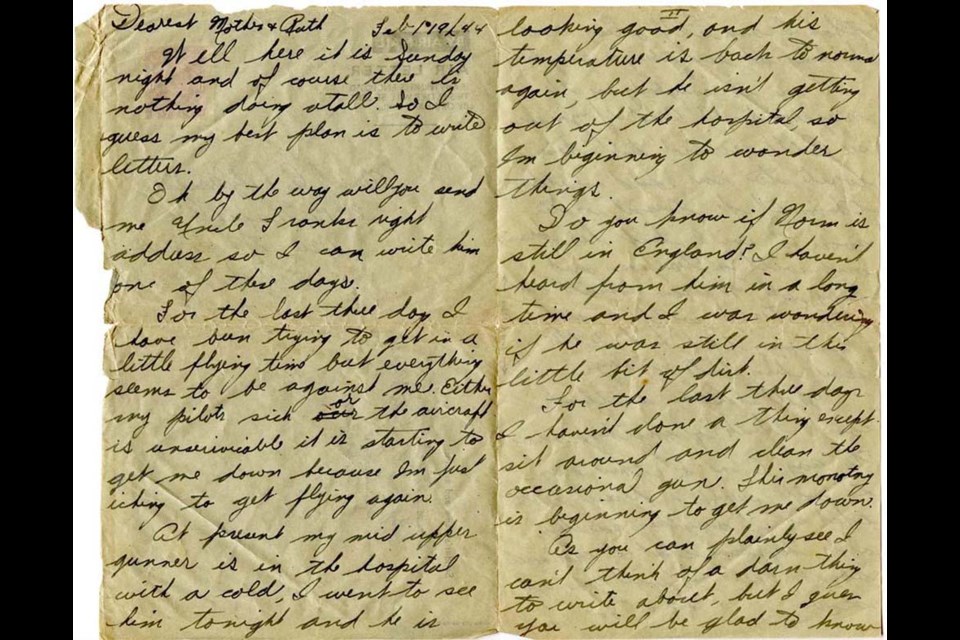 Dearest Mother & Ruth Feb 1st 1944
Well here it is Sunday
night and of course there is
nothing doing atall. So I
guess my best plan is to write
letters.
Oh by the way will you send
me Uncle Franks right
address so I can write him
one of these days.
For the last three day I
have been trying to get in a
little flying time but everything
seems to be against me. Either
my pilots sick or the aircraft
is unserivicible it is starting to
get me down because Im just
iching to get flying again.
At present my mid upper
gunner is in the hospital
with a cold, I went to see
him tonight and he is
II
looking good, and his
temperature is back to normal
again, but he isn't getting
out of the hospital, so
Im beginning to wonder
things.
Do you know if Norm is
still in England? I haven't
heard from him in a long
time and I was wondering
if he was still in this
little bit of dirt.
For the last three days
I havent done a thing except
sit around and clean the
occasional gun. This monotony
is beginning to get me down.
As you can plainly see I
can't think of a darn thing
to write about, but I guess
you will be glad to know